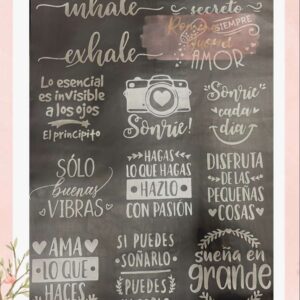 inhale
exhale
secreto
SIEMPRE
AMOR
Lo esencial
es invisible
a los ojos
El principito
Sonríe!
Sonríe
cada
día
SÓLO
buenas
VIBRAS
HAGAS
LO QUE HAGAS
HAZLO
CON PASIÓN
DISFRUTA
DE LAS
PEQUEÑAS
COSAS
AMA
LO QUE
HACES
SI PUEDES
SOÑARLO
PUEDES
sueña en
grande